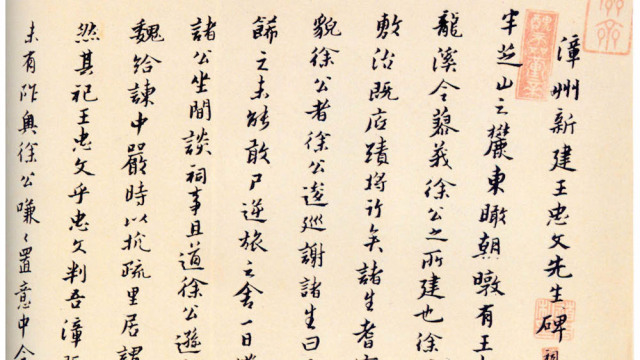 漳州新建王忠文先生碑
芝山之麓東瞰朝暾有王
龍溪令蓼莪徐公之所建也徐
敷治既底蹟將行矣諸生耆
貌徐公者徐公逡巡謝諸生曰
餙之未能敢尸逆旅之舍一日
諸公坐間談祠事且道徐公遜
魏給諫中嚴時以抗疏里居謂
然其祀王忠文乎忠文判吾漳
未有所與徐公嗛〻置意中今